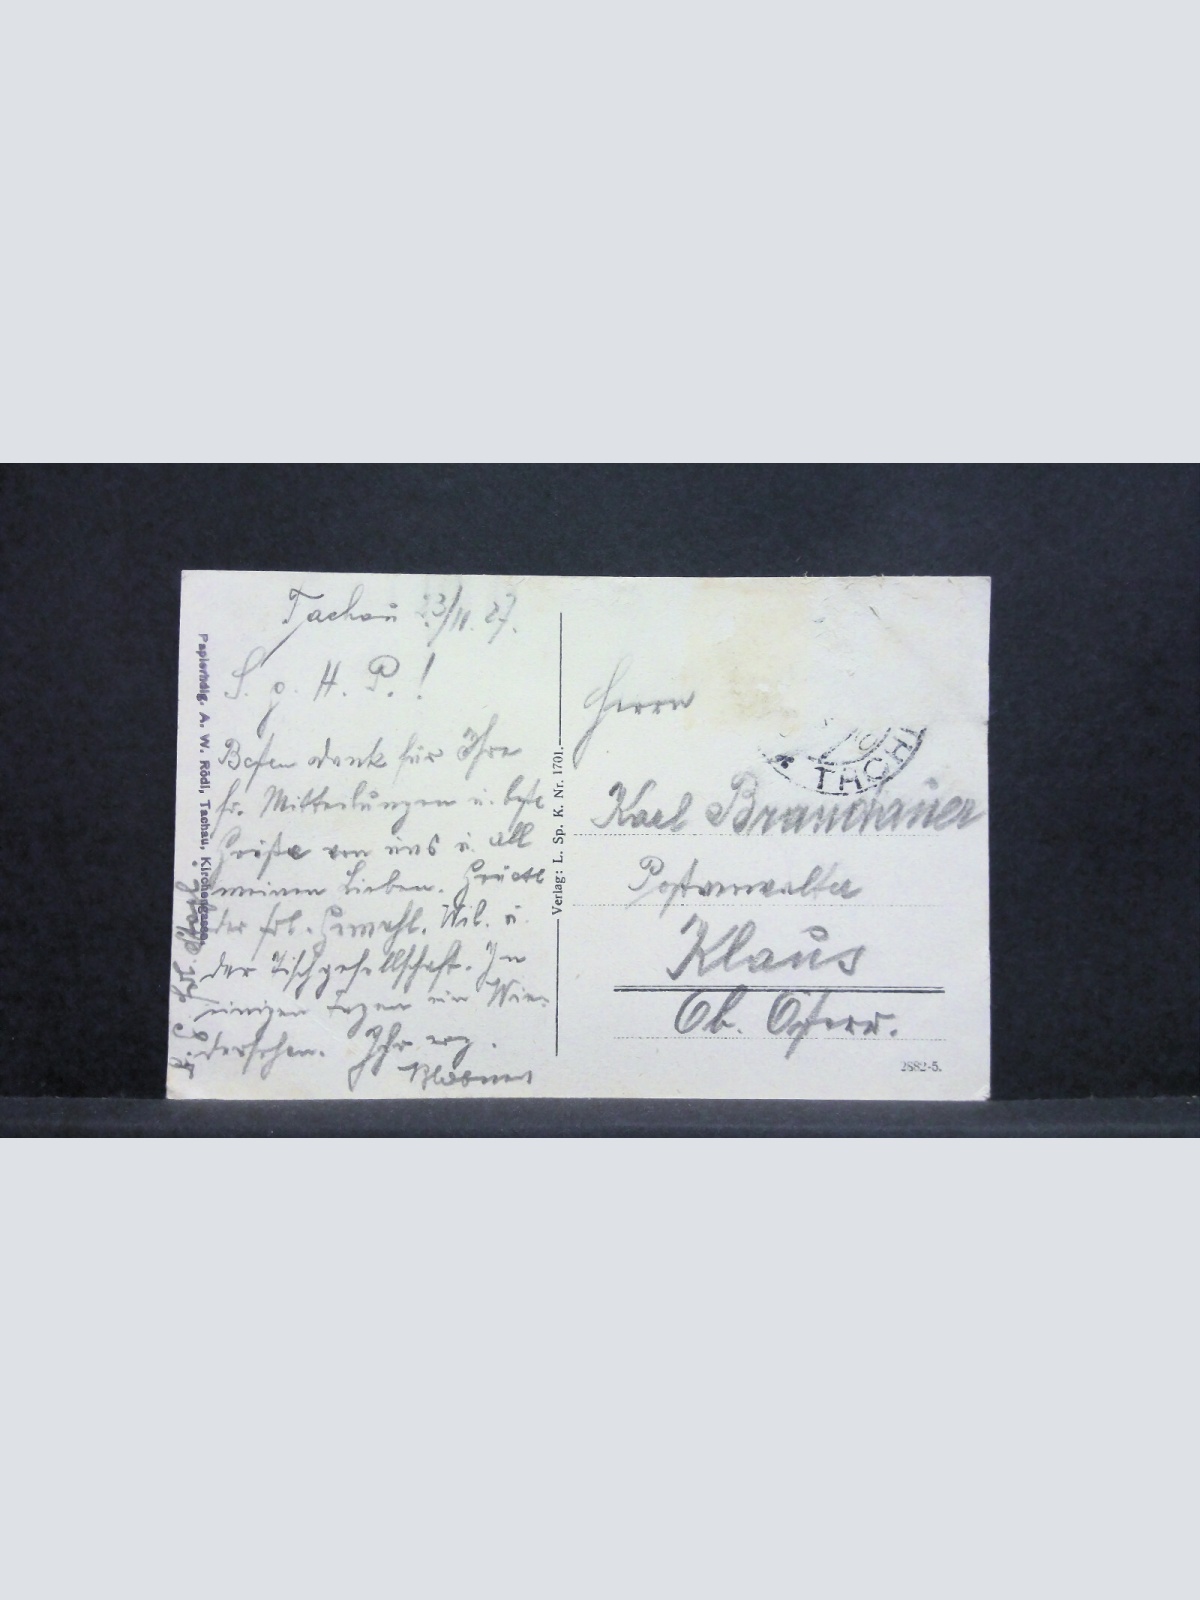 Tachau 23/II. 27.
S. g. H. P.!
Besten dank für Ihre
fr. Mitteilungen u. beste
Grüße von uns u. all
meinen Lieben.
der frl.
der Tischgesellschaft. In
einigen Tagen ein Wie-
dersehen. Ihr erg.
Papierhdlg. A. W. Rödl, Tachau, Kirchengasse.
Verlag: L. Sp. K. Nr. 1701.
TACH
Herrn
Karl Brandauer
Postverwalter
Klaus
Ob. Österr.
2882-5.